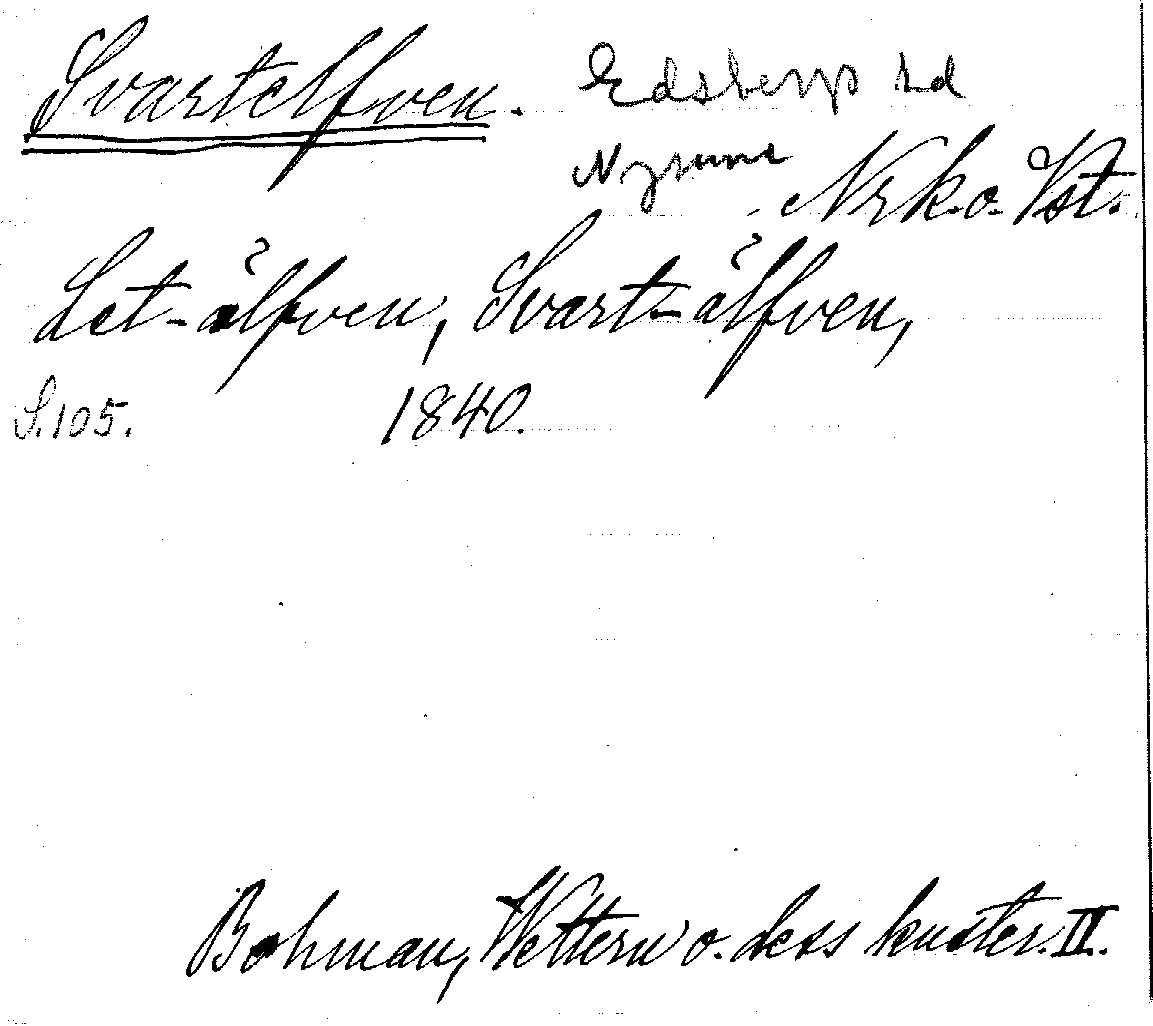 Svartelfven. Edsbergs hd
Nrk. o. Vst.
Let-älfven, Svart-älfven,
S. 105. 1840.
Bohman, Wettern o. dess kuster. II.